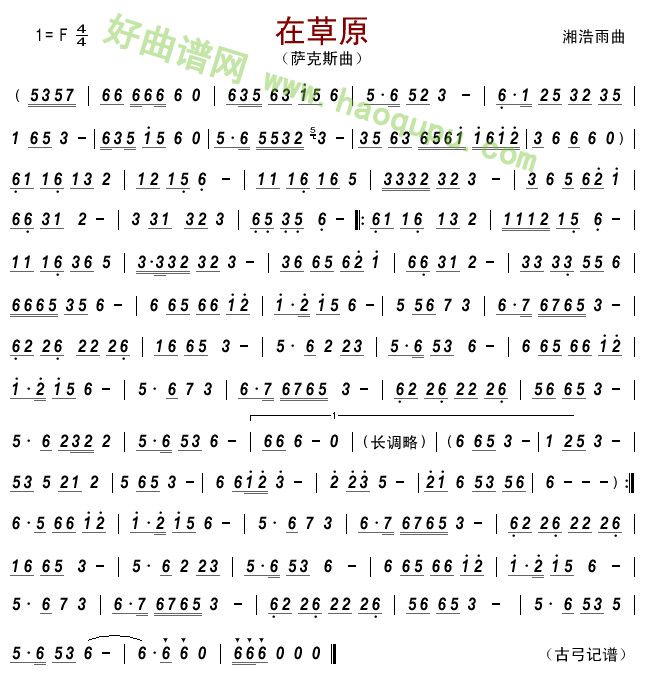 在草原
1=F 4/4
（萨克斯曲）
湘浩雨曲
好曲谱网
www.haoqupu.com
( 5357 | 66 666 6 0 | 635 63 i5 6 | 5·6 52 3 - | 6·1 25 32 35 |
1 65 3 - | 635 i5 6 0 | 5·6 5532 3 - | 35 63 656i i6i2 | 3 6 6 6 0 )
61 16 13 2 | 12 15 6 - | 11 16 16 5 | 3332 32 3 - | 3 6 5 62 i
66 31 2 - | 3 31 32 3 | 65 35 6 - |: 61 16 13 2 | 1112 15 6 - |
11 16 36 5 | 3·332 32 3 - | 36 65 62 i | 66 31 2 - | 33 33 55 6
6665 35 6 - | 6 65 66 i2 | i·2 i5 6 - | 5 56 7 3 | 6·7 6765 3 - |
62 26 22 26 | 16 65 3 - | 5·6 2 23 | 5·6 53 6 - | 6 65 66 i2 |
i·2 i5 6 - | 5·6 7 3 | 6·7 6765 3 - | 62 26 22 26 | 56 65 3 - |
1
5·6 232 2 | 5·6 53 6 - | 66 6 - 0 | (长调略) | (6 65 3 - | 1 25 3 - |
53 5 21 2 | 5 65 3 - | 6 6i2 3 - | 2 23 5 - | 2i 6 53 56 | 6 - - - ) :|
6·5 66 i2 | i·2 i5 6 - | 5·6 7 3 | 6·7 6765 3 - | 62 26 22 26 |
16 65 3 - | 5·6 2 23 | 5·6 53 6 - | 6 65 66 i2 | i·2 i5 6 - |
5·6 7 3 | 6·7 6765 3 - | 62 26 22 26 | 56 65 3 - | 5·6 53 5 |
5·6 53 6 - | 6·6 6 0 | 666 0 0 0 |
（古弓记谱）